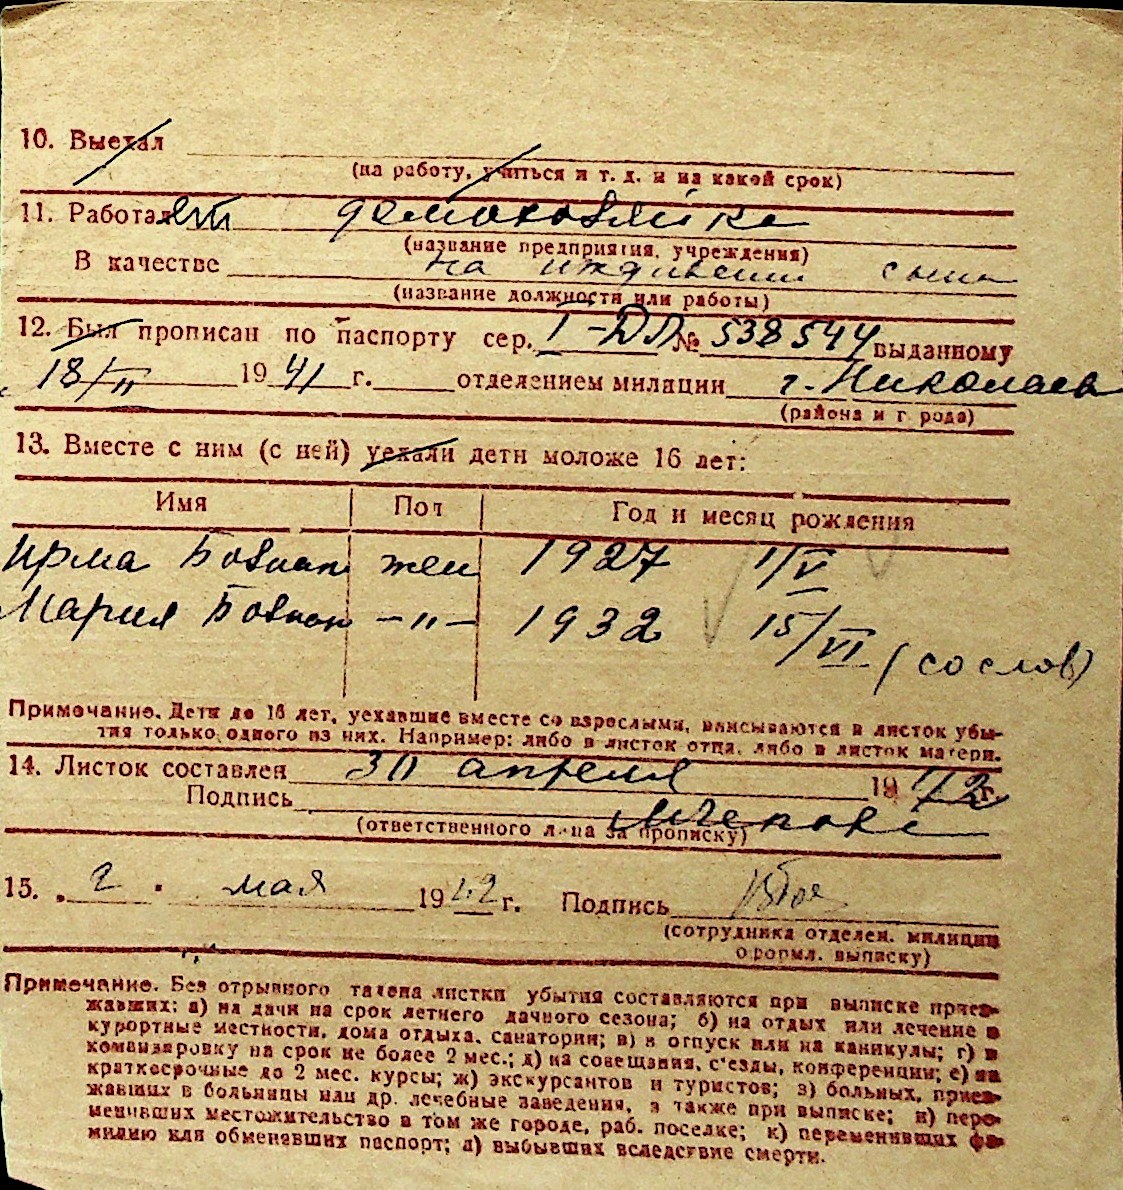 10. Выехал
(на работу, учиться и т. д. и на какой срок)
11. Работает домохозяйка
(название предприятия, учреждения)
В качестве на иждивении сына
(название должности или работы)
12. Был прописан по паспорту сер. I-ДЛ № 538544 выданному
18/II 1941 г. отделением милиции г. Николаев
(района и города)
13. Вместе с ним (с ней) уехали дети моложе 16 лет:
Имя Пол Год и месяц рождения
Ирма жен 1927 1/V
Мария -"- 1932 15/VI (со слов)
Примечание. Дети до 16 лет, уехавшие вместе со взрослыми, вписываются в листок убы-
тия только одного из них. Например: либо в листок отца, либо в листок матери.
14. Листок составлен 30 апреля 1942 г.
Подпись
(ответственного лица за прописку)
15. „2" мая 1942 г. Подпись
(сотрудника отделен. милиции
оформл. выписку)
Примечание. Без отрывного талона листки убытия составляются при выписке приез-
жавших: а) на дачи на срок летнего дачного сезона; б) на отдых или лечение в
курортные местности, дома отдыха, санатории; в) в отпуск или на каникулы; г) в
командировку на срок не более 2 мес.; д) на совещания, с'езды, конференции; е) на
краткосрочные до 2 мес. курсы; ж) экскурсантов и туристов; з) больных, приез-
жавших в больницы или др. лечебные заведения, а также при выписке; и) пере-
менивших местожительство в том же городе, раб. поселке; к) переменивших фа-
милию или обменявших паспорт; л) выбывших вследствие смерти.